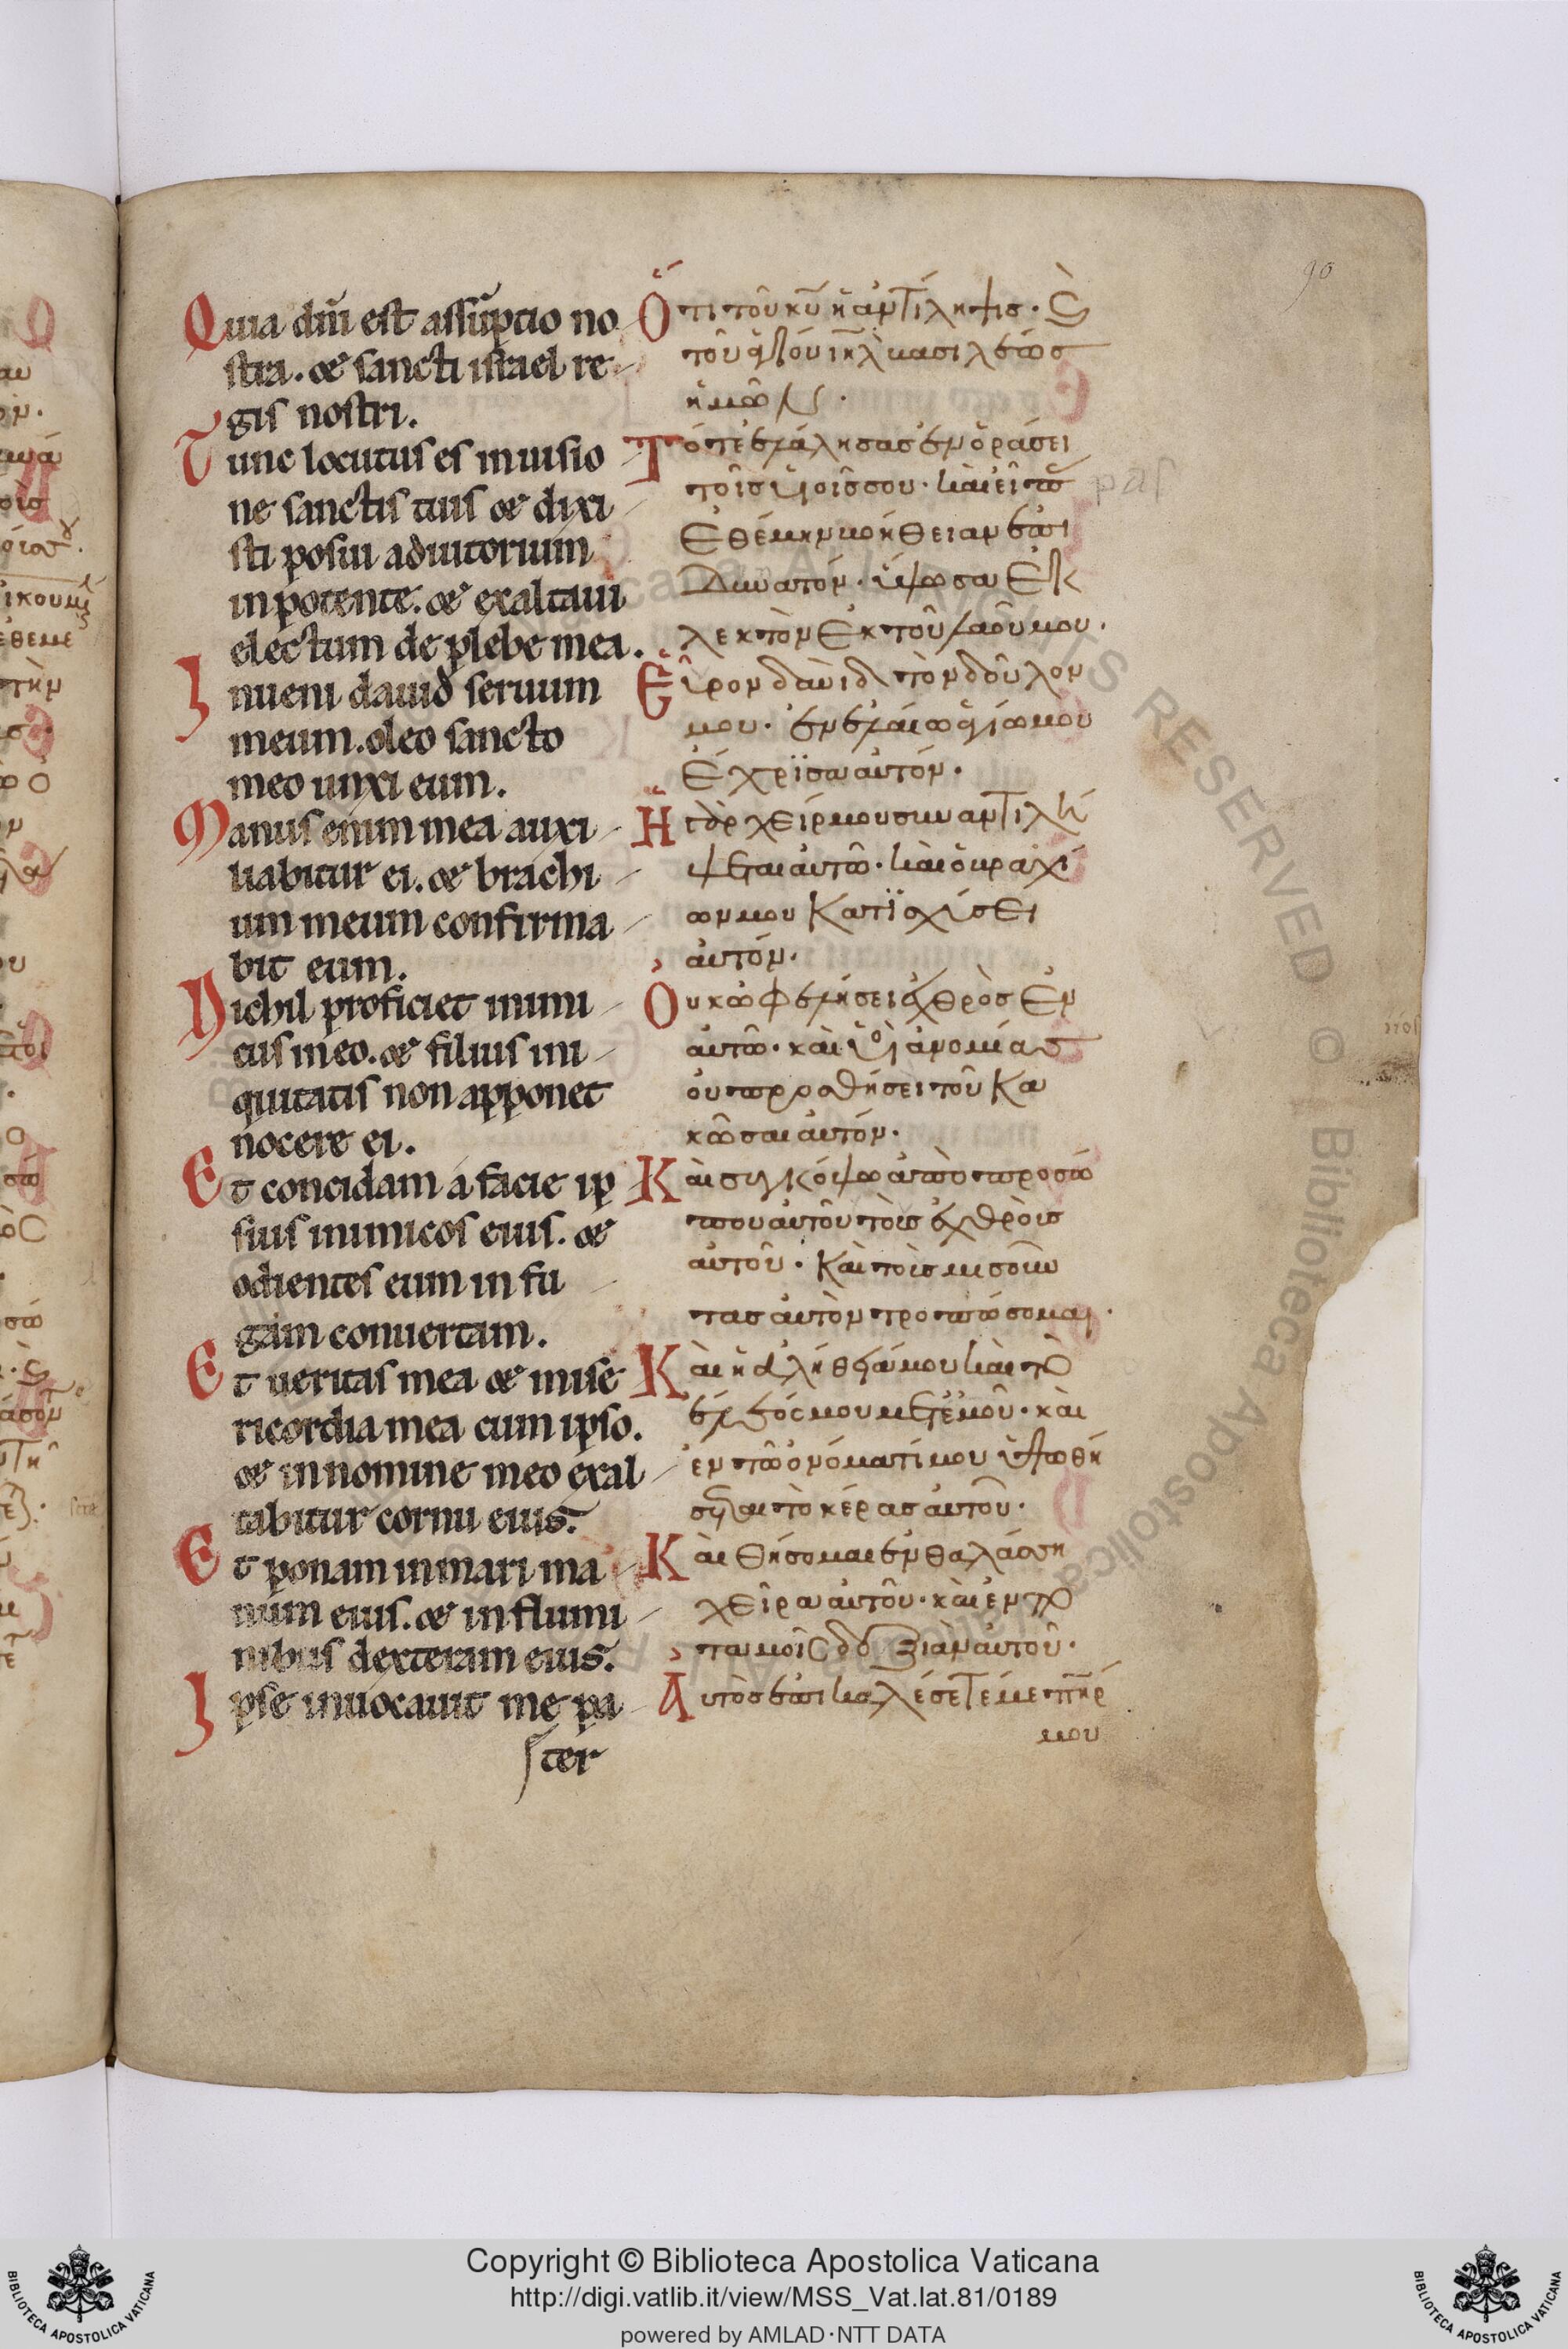 90
Quia dn̄i est assūptio no
stra. & sancti israel re
gis nostri.
Tunc locutus es in uisio
ne sanctis tuis & dixi
sti posui adiutorium
in potente. & exaltaui
electum de plebe mea.
Inueni dauid seruum
meum. oleo sancto
meo unxi eum.
Manus enim mea auxi
liabitur ei. & brachi
um meum confirma
bit eum.
Nichil proficiet inimi
cus in eo. & filius ini
quitatis non apponet
nocere ei.
Et concidam a facie ip
sius inimicos eius. &
odientes eum in fu
gam conuertam.
Et ueritas mea & mise
ricordia mea cum ipso.
& in nomine meo exal
tabitur cornu eius.
Et ponam in mari ma
num eius. & in flumi
nibus dexteram eius.
Ipse inuocauit me pa
ter
Ὅτι τοῦ κῡ ἡ ἀντίληψις. Ϗ̀
τοῦ ἁγίου ιη̄λ βασιλέως
ἡμῶν.
Τότε ἐλάλησας ἐν ὁράσει
τοῖς υἱοῖς σου. καὶ εἶπας
Ἐθέμην βοήθειαν ἐπὶ
Δυνατόν. ὕψωσα Ἐκ
λεκτὸν Ἐκ τοῦ λαοῦ μου.
Εὗρον δαυὶδ τὸν δοῦλον
μου. ἐν ἐλαίω ἁγίω μου
Ἔχρϊσα αὐτόν.
Ἡ γὰρ χείρ μου συναντιλή
ψεται αὐτῶ. καὶ ὁ βραχί
ων μου Κατϊσχύσει
αὐτόν.
Ὀυκ ὠφελήσει ἐχθρὸς Ἐν
αὐτῶ. καὶ ὑιὸς ἀνομίας
οὐ προσθήσει τοῦ Κα
κῶσαι αὐτόν.
Κὰι συγκόψω ἀπὸ προσώ
που αὐτοῦ τοὶς ἐχθροὶς
αὐτοῦ. Κὰι τοὶς μισοῦν
τας αὐτὸν τροπώσομαι.
Κὰι ἡ ἀλήθειά μου καὶ τὸ
ἔλεός μου μετ' ἐμοῦ. κὰι
ἐν τῶ ὀνόματί μου ὑψωθή
σεται τὸ κέρας αὐτοῦ.
Κὰι Θήσομαι ἐν θαλάσση
χεῖρα αὐτοῦ. κὰι ἐν πο
ταμοῖς δεξιὰν αὐτοῦ.
Ἀυτὸς ἐπικαλέσεταί με πη̄ρ
μου
Copyright © Biblioteca Apostolica Vaticana
http://digi.vatlib.it/view/MSS_Vat.lat.81/0189
powered by AMLAD·NTT DATA
BIBLIOTECA APOSTOLICA VATICANA
BIBLIOTECA APOSTOLICA VATICANA